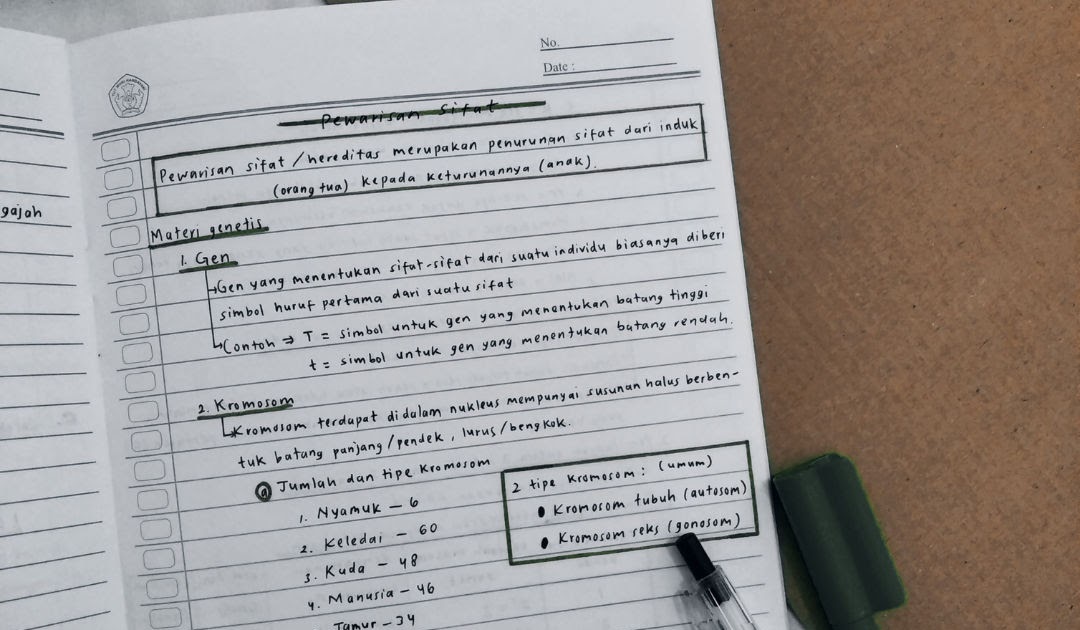 No.
Date :
gajah
Pewarisan Sifat
Pewarisan sifat / hereditas merupakan penurunan sifat dari induk
(orang tua) kepada keturunannya (anak).
Materi genetis
1. Gen
Gen yang menentukan sifat-sifat dari suatu individu biasanya diberi
simbol huruf pertama dari suatu sifat
Contoh ⇒ T = simbol untuk gen yang menentukan batang tinggi
t = simbol untuk gen yang menentukan batang rendah.
2. Kromosom
Kromosom terdapat didalam nukleus mempunyai susunan halus berben-
tuk batang panjang/pendek, lurus/bengkok.
a Jumlah dan tipe kromosom
1. Nyamuk – 6
2. Keledai – 60
3. Kuda – 48
4. Manusia – 46
Jamur – 34
2 tipe kromosom : (umum)
• Kromosom tubuh (autosom)
• Kromosom seks (gonosom)